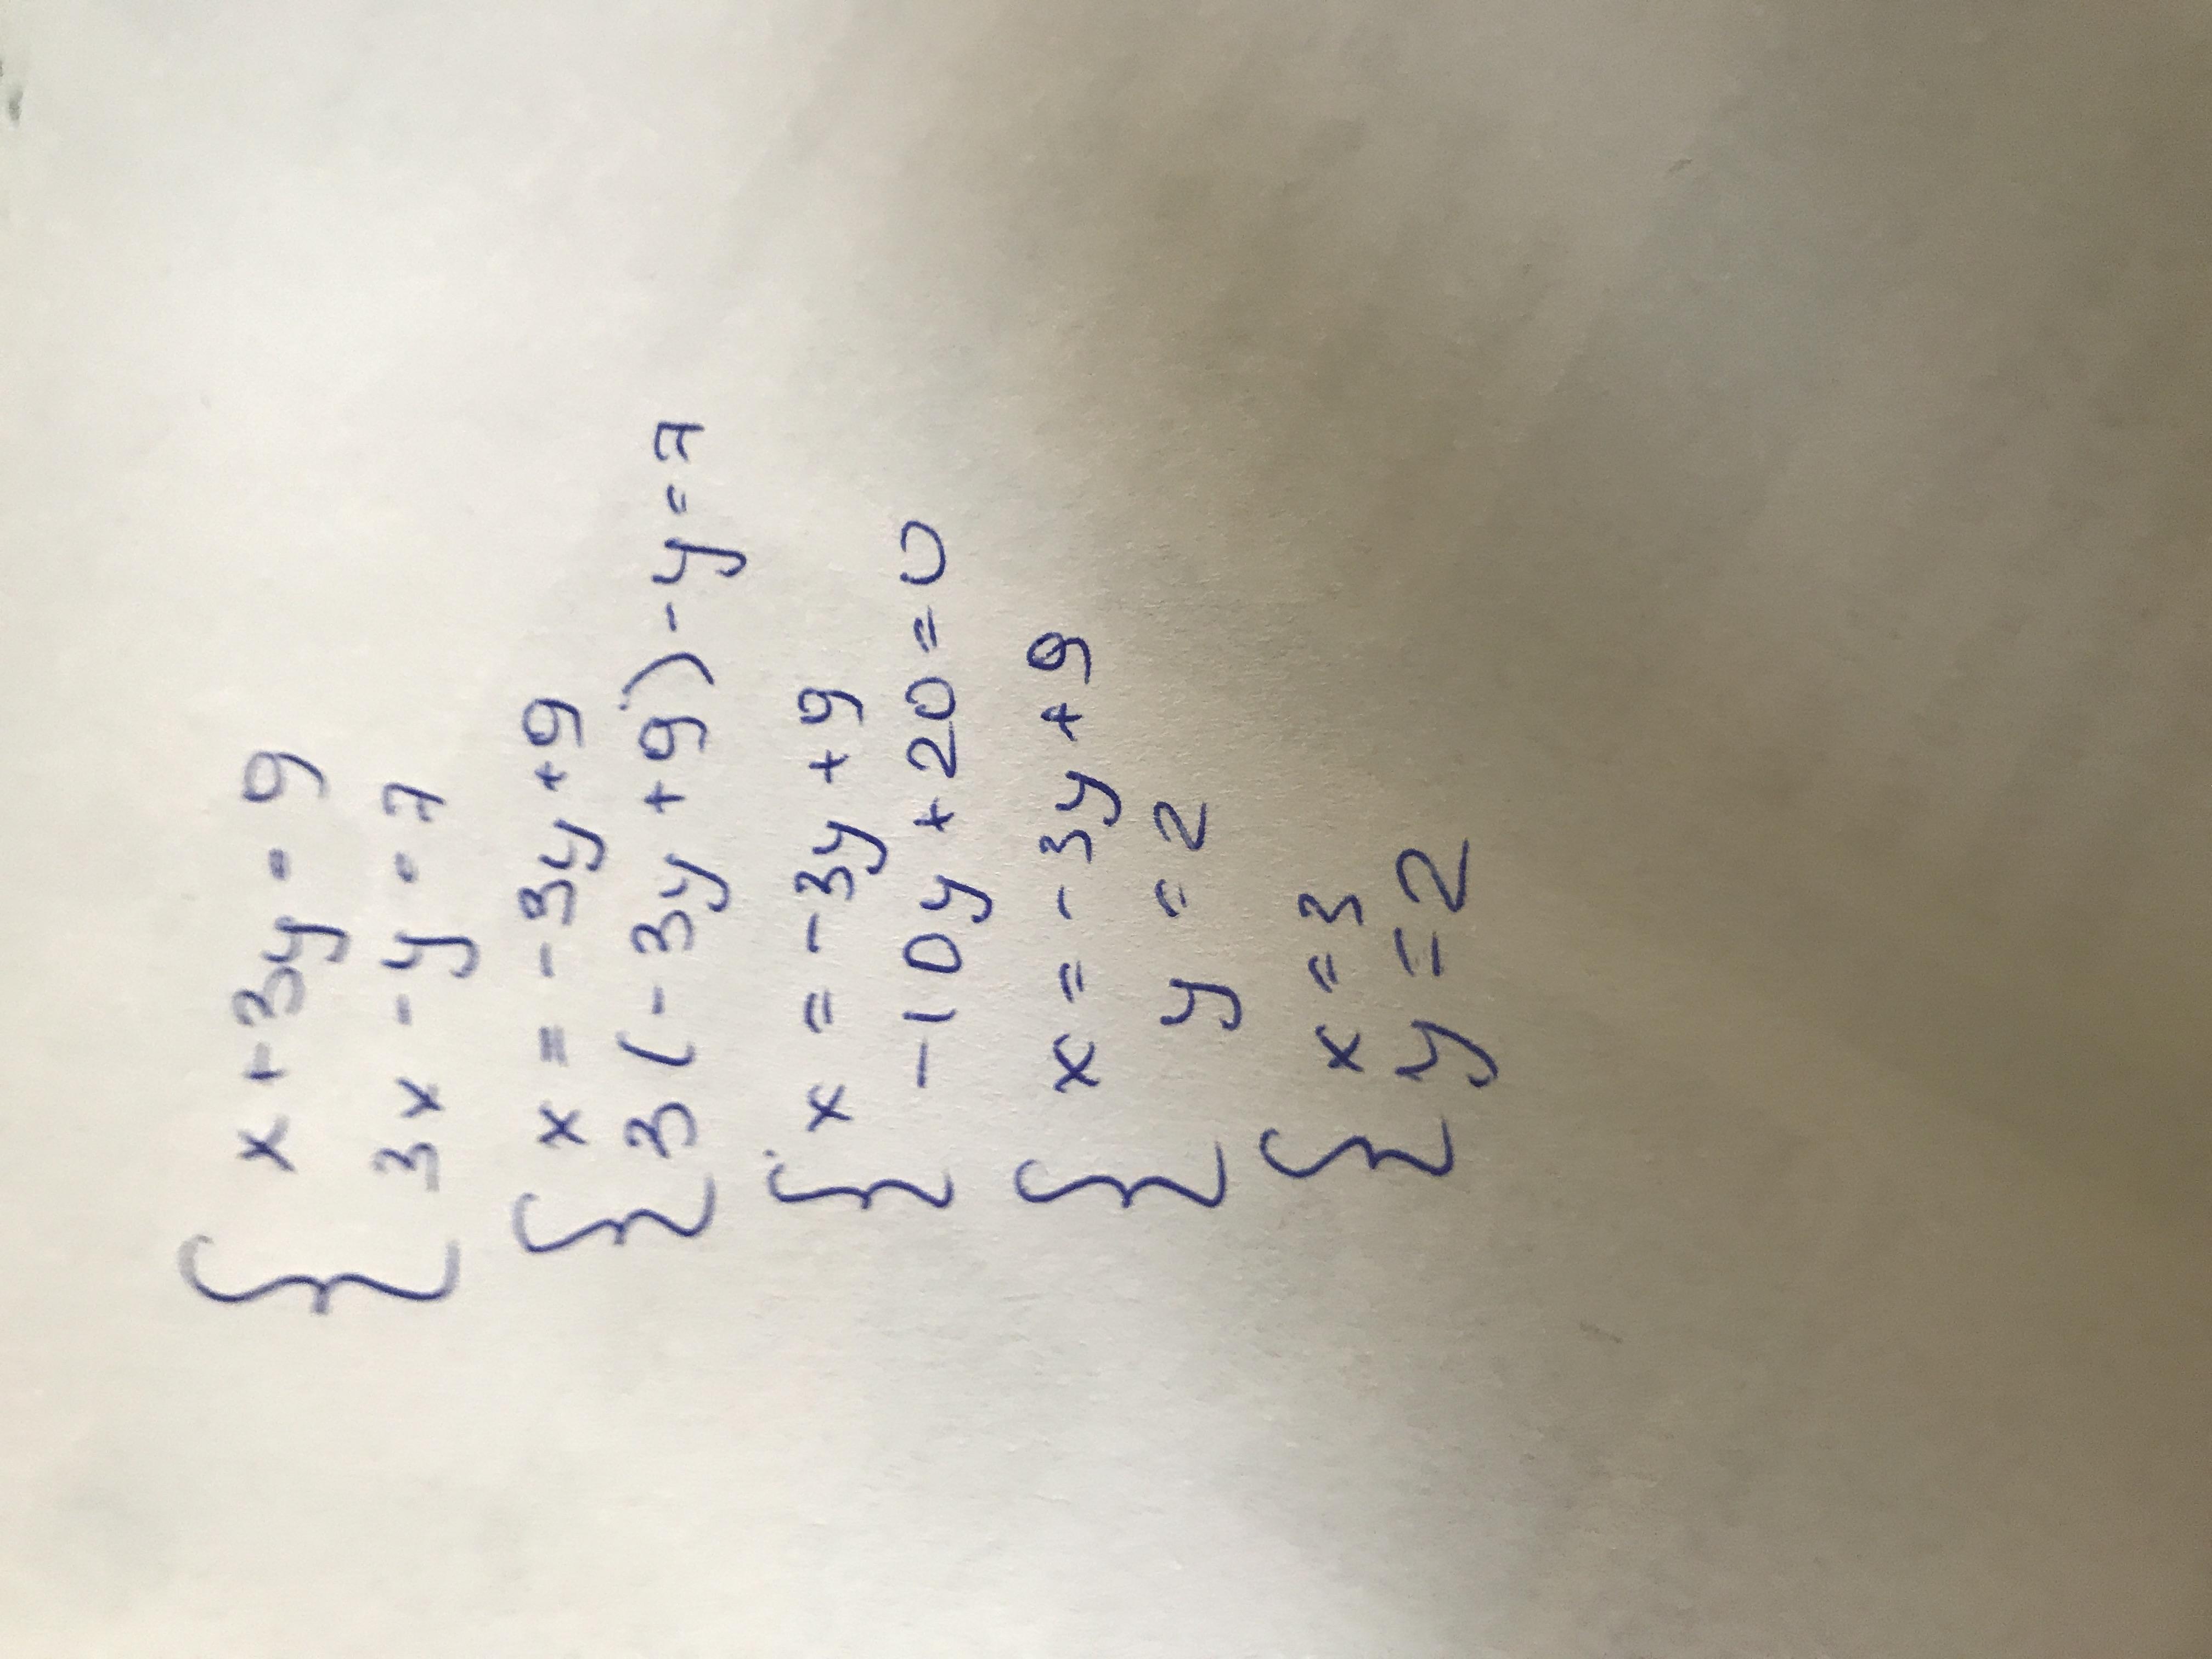 x + 3y = 9
3x - y = 7
x = -3y + 9
3(-3y + 9) - y = 7
x = -3y + 9
-10y + 20 = 0
x = -3y + 9
y = 2
x = 3
y = 2